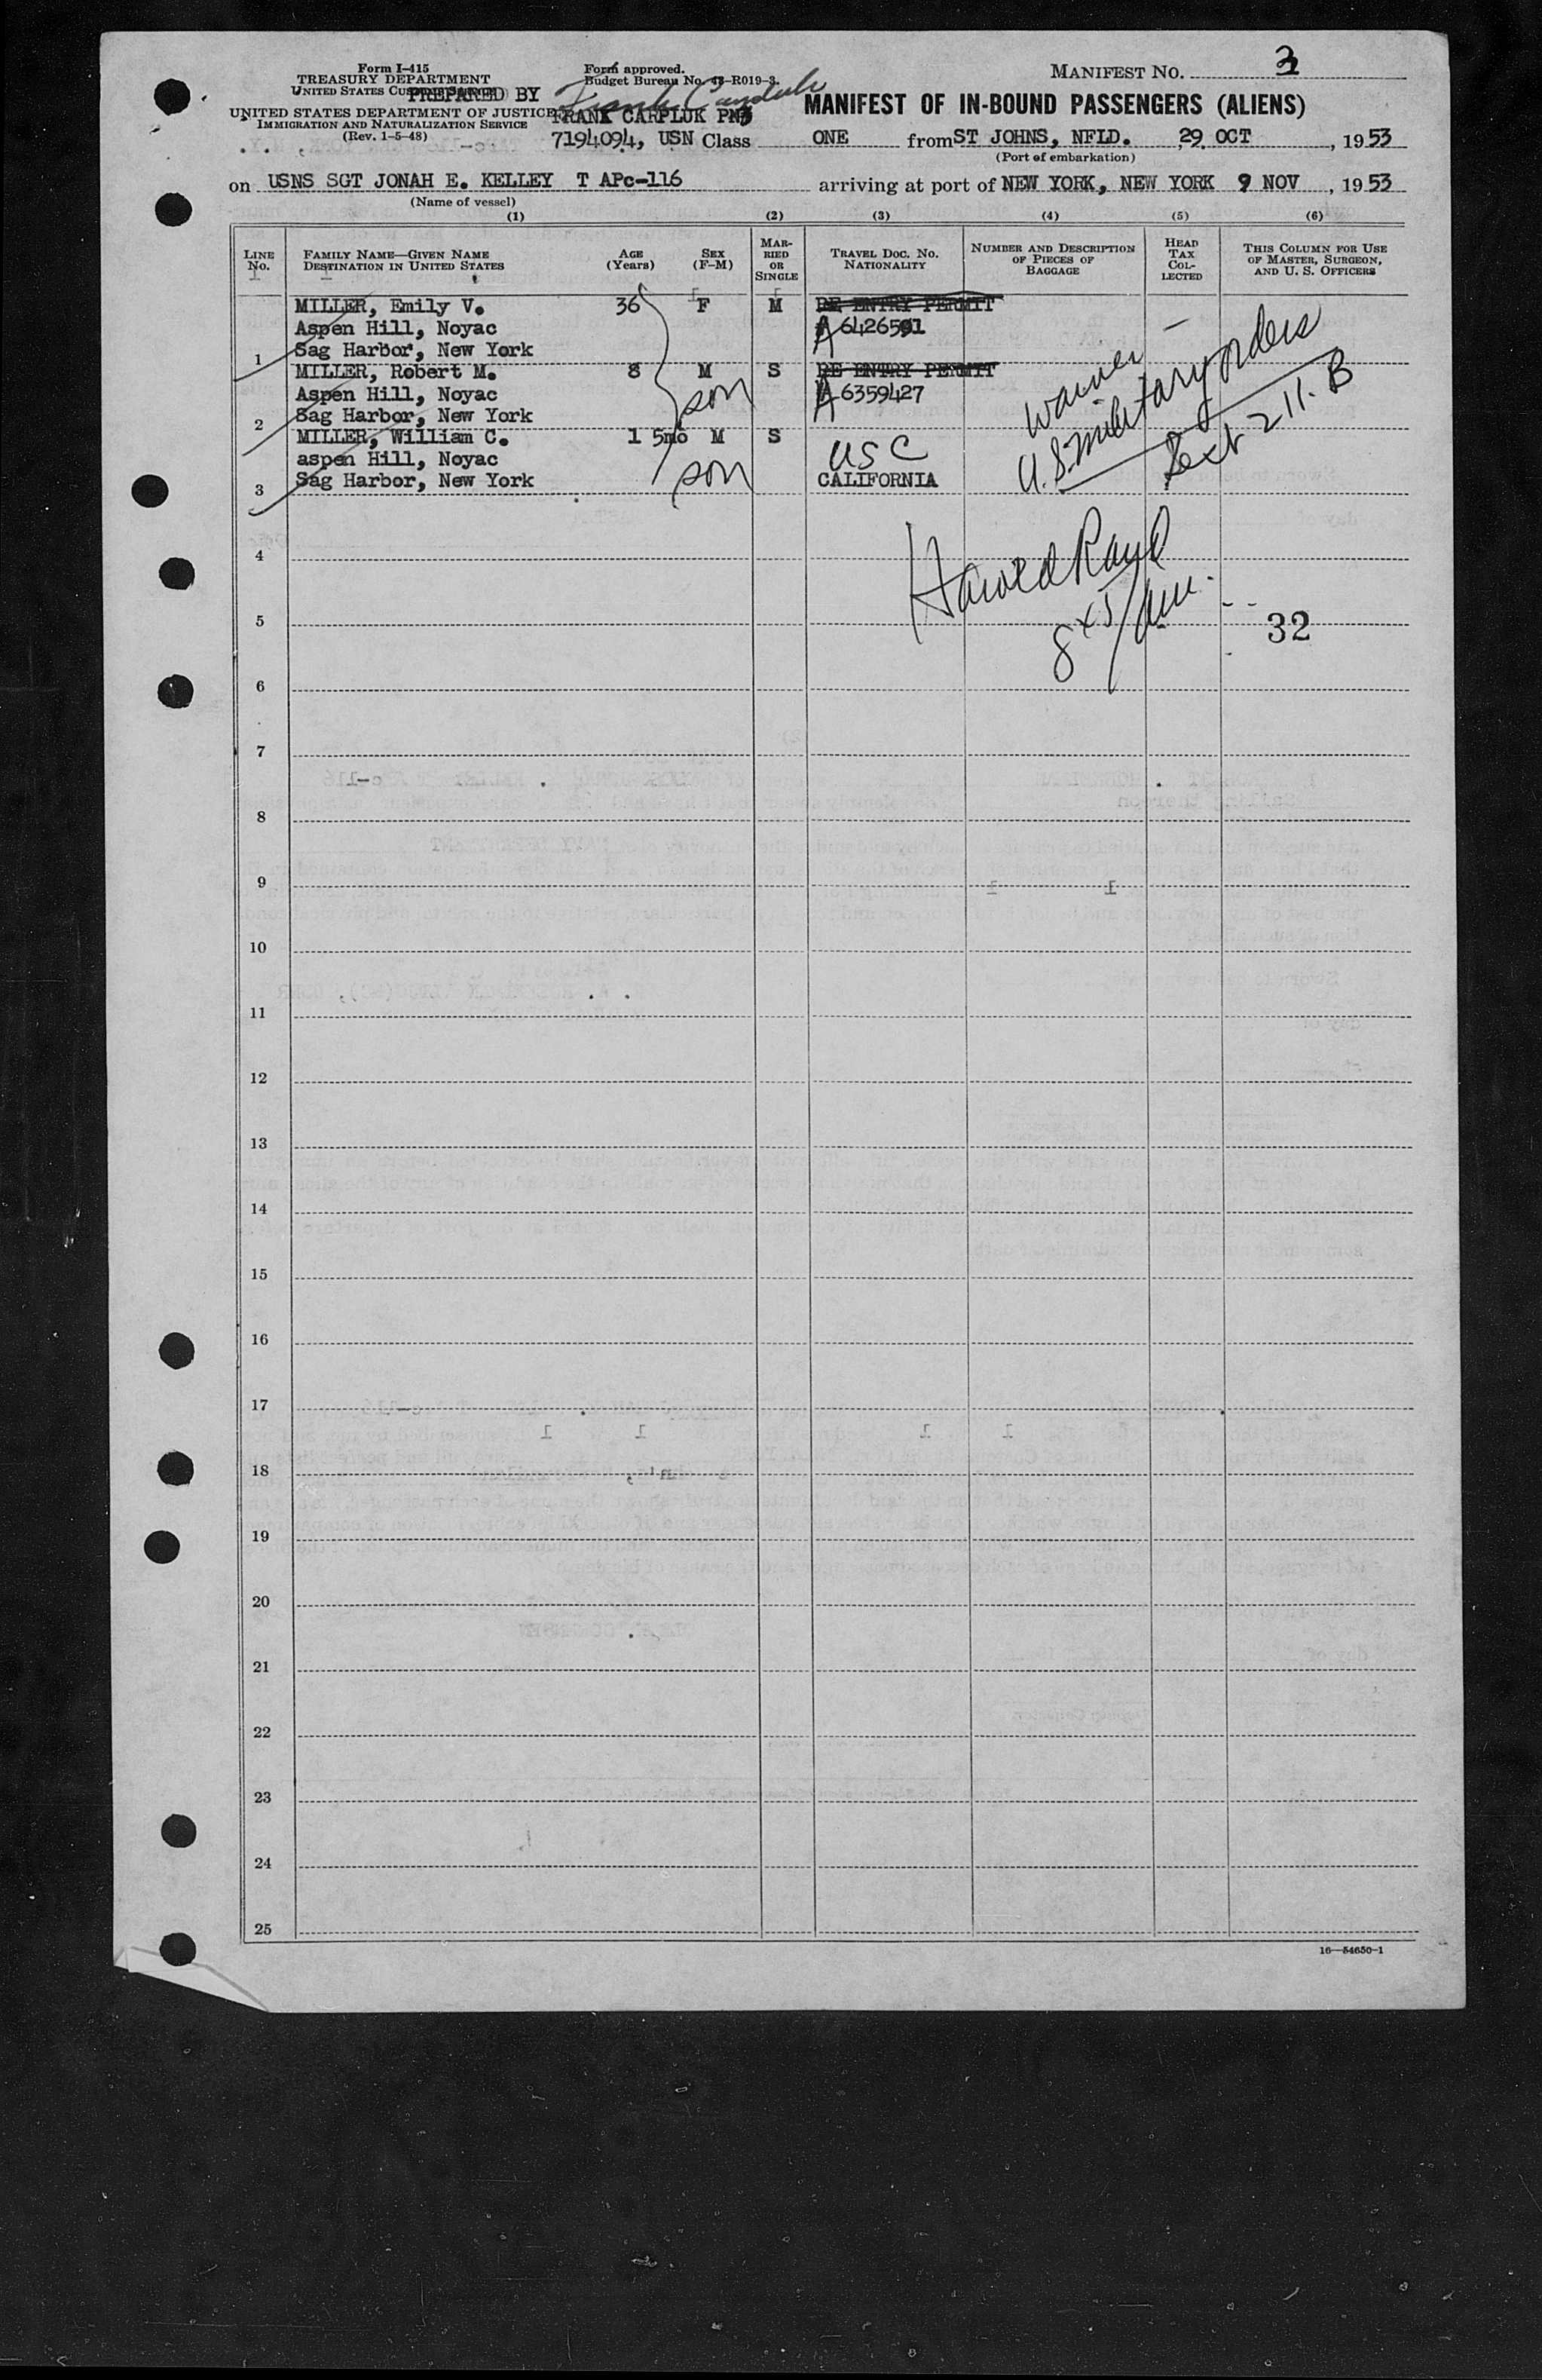 Form I-415
TREASURY DEPARTMENT
UNITED STATES CUSTOMS SERVICE
UNITED STATES DEPARTMENT OF JUSTICE
IMMIGRATION AND NATURALIZATION SERVICE
(Rev. 1-5-48)
Form approved.
Budget Bureau No. 43-R019-3.
PREPARED BY
FRANK CARPLUK PN3
7194094, USN
MANIFEST NO. 3
MANIFEST OF IN-BOUND PASSENGERS (ALIENS)
Class ONE from ST JOHNS, NFLD. 29 OCT, 1953
(Port of embarkation)
on USNS SGT JONAH E. KELLEY T APc-116 arriving at port of NEW YORK, NEW YORK 9 NOV, 1953
(Name of vessel)
(1) (2) (3) (4) (5) (6)
LINE No. FAMILY NAME—GIVEN NAME DESTINATION IN UNITED STATES AGE (Years) SEX (F-M) MARRIED OR SINGLE TRAVEL DOC. NO. NATIONALITY NUMBER AND DESCRIPTION OF PIECES OF BAGGAGE HEAD TAX COLLECTED THIS COLUMN FOR USE OF MASTER, SURGEON, AND U. S. OFFICERS
MILLER, Emily V. 36 F M RE ENTRY PERMIT
Aspen Hill, Noyac A 6426591
1 Sag Harbor, New York
MILLER, Robert M. 8 M S RE ENTRY PERMIT
Aspen Hill, Noyac son A 6359427
2 Sag Harbor, New York
MILLER, William C. 1 5mo M S
aspen Hill, Noyac son USC
3 Sag Harbor, New York CALIFORNIA
waiver
U.S. military orders
Sect 211. B
Harold
4
5
32
6
7
8
9
10
11
12
13
14
15
16
17
18
19
20
21
22
23
24
25
16—54650-1